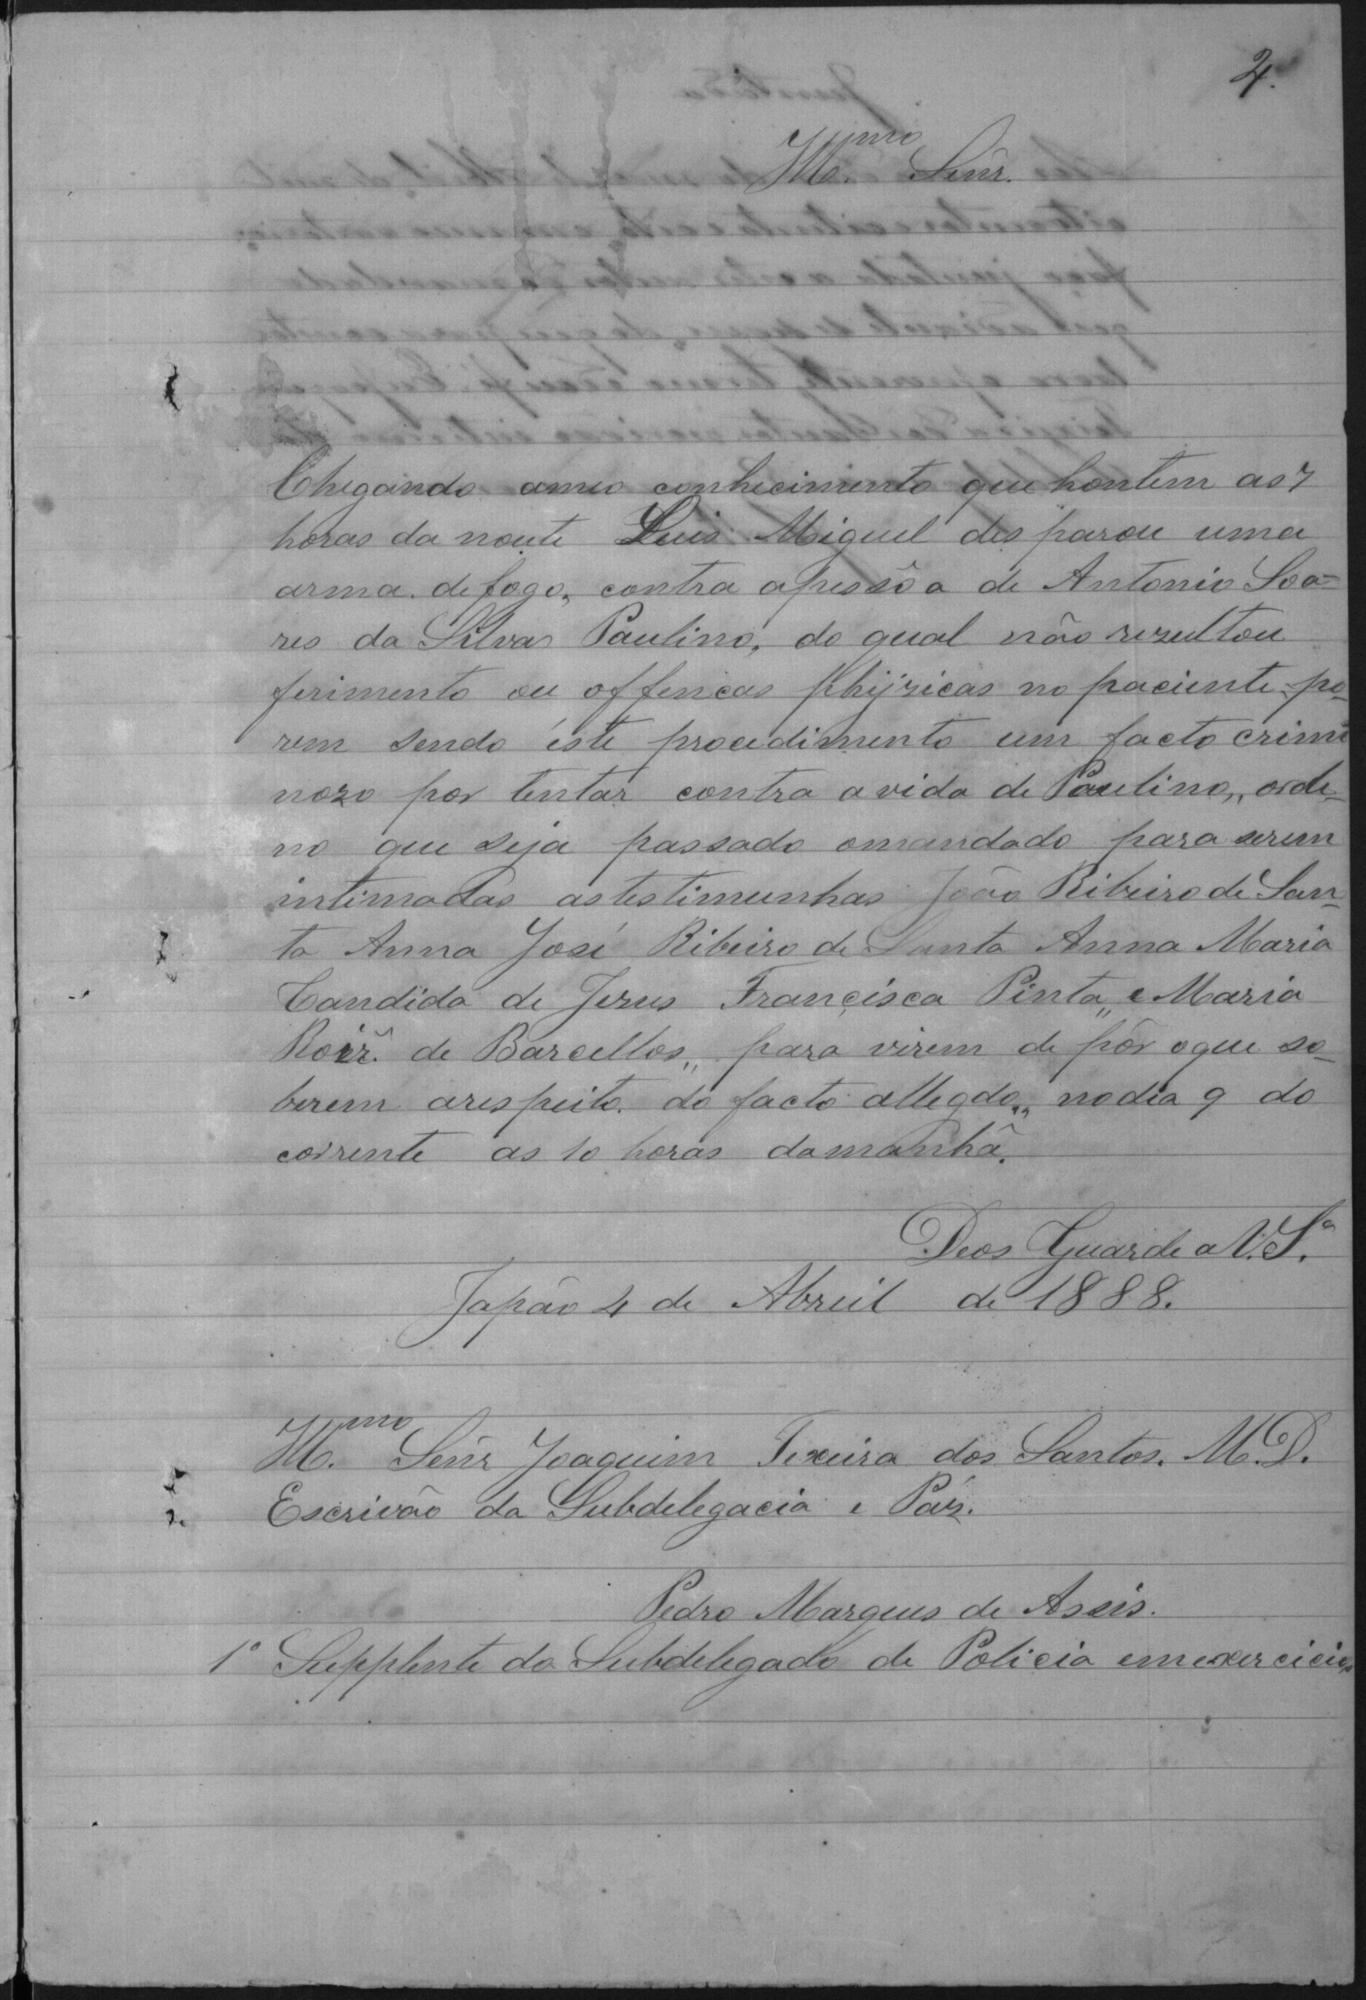 2.
Illmo Senr.
Chegando ameo conhecimento que hontem as 7
horas da noute Luis Miguel desparou uma
arma de fogo, contra apessôa de Antonio Soa=
res da Silva Paulino, do qual não rezultou
ferimento ou offencas phijzicas no paciente, po-
rem sendo éste procedimento um facto crimi
nozo por tentar contra avida de Paulino,, orde-
no que seja passado omandado para serem
intimadas astestimunhas João Ribeiro de San-
ta Anna José Ribeiro de Santa Anna Maria
Candida de Jezus Francisca Pinta,, e Maria
Roiz. de Barcellos,, para virem de pôr oque so-
berem arespeito do facto allegdo,, nodia 9 do
corrente as 10 horas damanhã.
Deos Guarde a V. Sa.
Japão 4 de Abreil de 1888.
Illmo. Senr Joaquim Texeira dos Santos. M. D.
Escrivão da Subdelegacia e Páz.
Pedro Marques de Assis.
1º Supplente do Subdelegado de Policia emexercicio